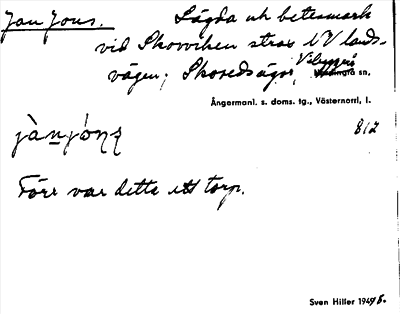 Jan Jons. Lägda och betesmark
vid Skovviken strax i V lands-
vägen; Skoredsägor, Vibyggerå
sn,
Ångermanl. s. doms. tg., Västernorrl. l.
jàn jónꞩ 812
Förr var detta ett torp.
Sven Hiller 1945.